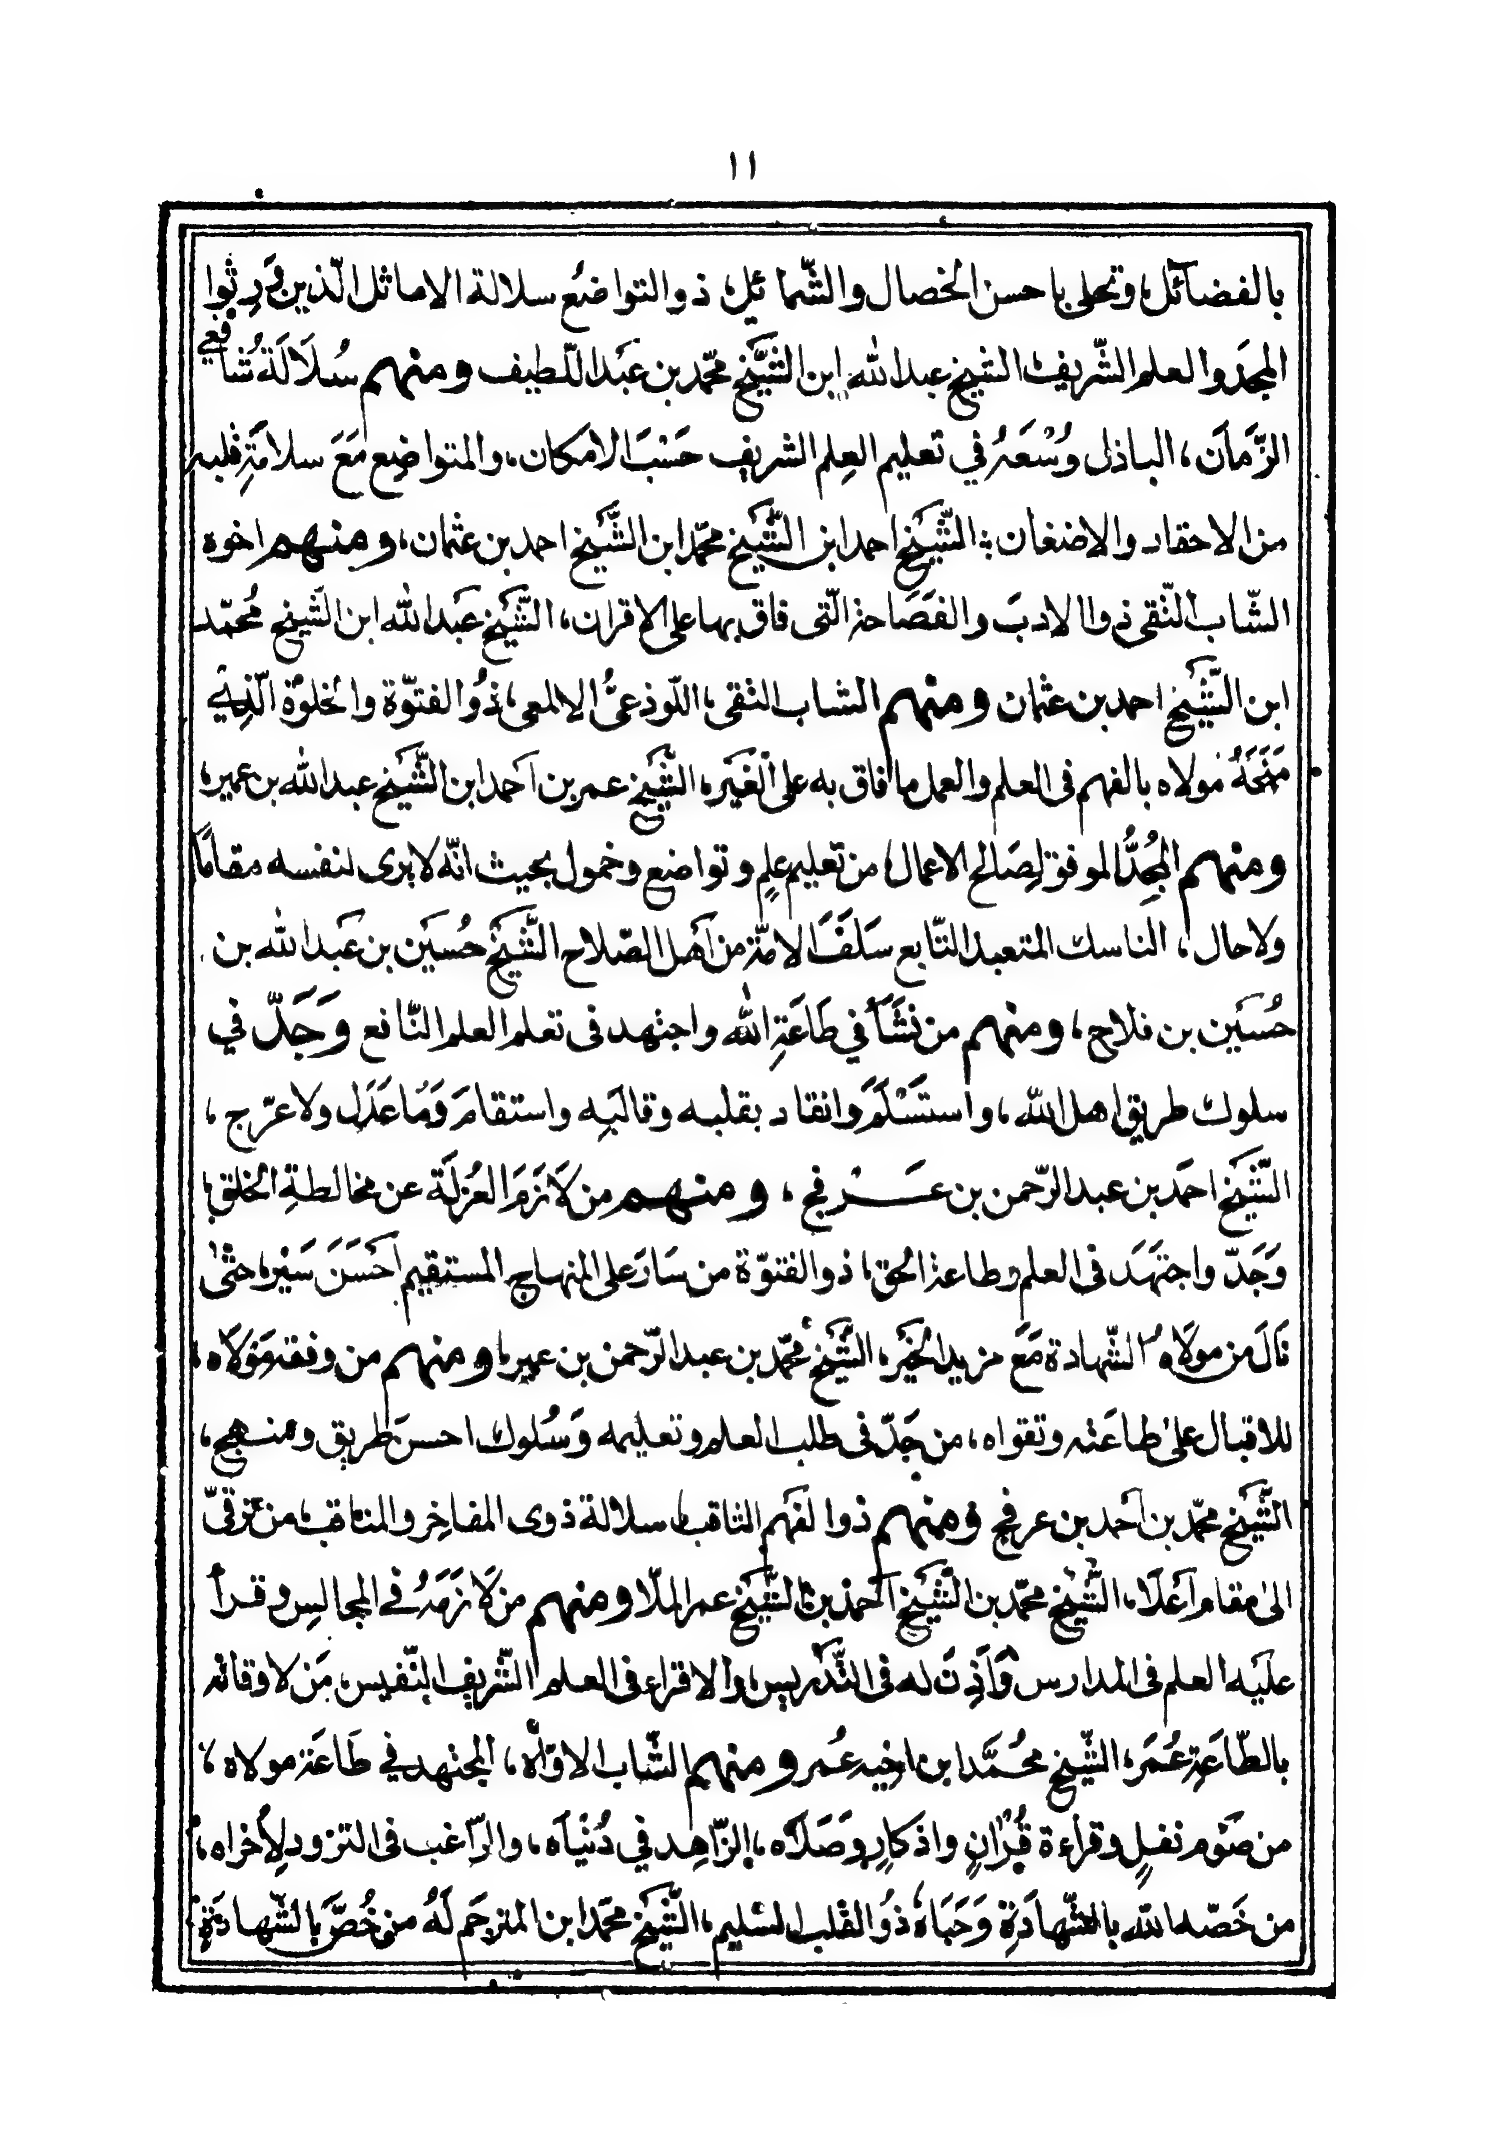 ١١
بالفضآئل، وتحلى باحسن الخصال والشّمائل، ذو التواضُع سلالة الاماثل الّذين وَرِثوا
المجدَ والعلم الشّريف الشيخ عبد الله ابن الشَّيْخ محمّد بن عَبْد اللّطيف ومنهم سُلَالَةُ شافعي
الزَّمَان، الباذل وُسْعَهُ في تَعليم العِلم الشريف حَسَبَ الامكان، والمتواضِع مَعَ سلامَةِ قلبه
من الاحقاد والاضغان الشَّيْخ احمد ابن الشَّيْخ محمّد ابن الشَّيْخ احمد بن عثمان، ومنهم اخوه
الشّاب التّقى ذو الادبَ والفصَاحة الّتى فاق بها على الاقران، الشَّيْخ عَبد الله ابن الشَّيخ مُحمّد
ابن الشَّيْخ احمد بن عثمان ومنهم الشاب التقى، اللّوذعىُّ الالمعى، ذُو الفتوّة والخلوة الّذي
مَنَحَهُ مولاه بالفهم فى العلم والعمل ما فاق به على الغَيْر، الشَّيْخ عمر بن اَحمد ابن الشَّيْخ عبد الله بن عمير،
ومنهم المُجِدُّ الموفق لِصَالح الاعمال، من تعليم علمٍ وتواضع وخمول بحيث انّه لا يرى لنفسه مقامًا
ولا حال، الناسك المتعبد التّابع سَلَفَ الامّة من اَهل الصّلاح الشَّيْخ حُسَين بن عَبد الله بن
حُسَين بن فلاح، ومنهم من نَشَأَ في طَاعَةِ الله واجتهد فى تعلم العلم النّافع وَجَدّ في
سلوك طريق اهل الله، واستَسْلَمَ وانقاد بقلبه وقالبِه واستقامَ وَمَا عَدَل ولا عرّج،
الشَّيْخ احمَد بن عبد الرّحمن بن عَرْفج، ومنهم من لَازَمَ العُزلَة عن مخالطةِ الخلق،
وَجَدّ واجتهَدَ فى العلم وطاعة الحق، ذو الفتوّة من سَارَ على المنهاج المستقيم اَحْسَنَ سَيْر، حتّى
نَالَ من مولَاه الشّهادة مَعَ مزيد الخَيْر، الشَّيْخ محمّد بن عبد الرّحمن بن عمير، ومنهم من وفقه مَولَاه،
للاقبال على طاعَته وتقواه، من جَدّ فى طلب العلم وتعليمه وَسُلوك احسن طريق ومنهج،
الشَّيْخ محمّد بن اَحمد بن عرفج ومنهم ذو الفَهم الثاقب، سلالة ذوى المفاخِر والمناقب، من ترقّى
الى مقام اَعْلَا، الشَّيْخ محمّد بن الشَّيْخ اَحمد بن الشَّيْخ عمر الملّا ومنهم من لَازَمتُه في المجالس وقرأ
علَيه العلم فى المدارس وَاَذِنَ له فى التَّدريس، والاقراء فى العلم الشّريف النّفيس، مَن لاوقاته
بالطّاعَة عَمَر، الشَّيْخ محُمَّد ابن اخِيه عُمر ومنهم الشّاب الاوّاه، المجتهد في طَاعَة مولاه،
من صَوْم نفلٍ وقراءة قُرْانٍ واذكارٍ وصَلَاه، الزّاهِد في دُنيَاه، والرّاغب فى التزود لِأخراه،
من خَصّه الله بالشّهادَة وَحَبَاه ذُو القَلب السّليم، الشَّيْخ محمّد ابن المترجَم لَهُ من خُصَّ بالشّهادَةِ